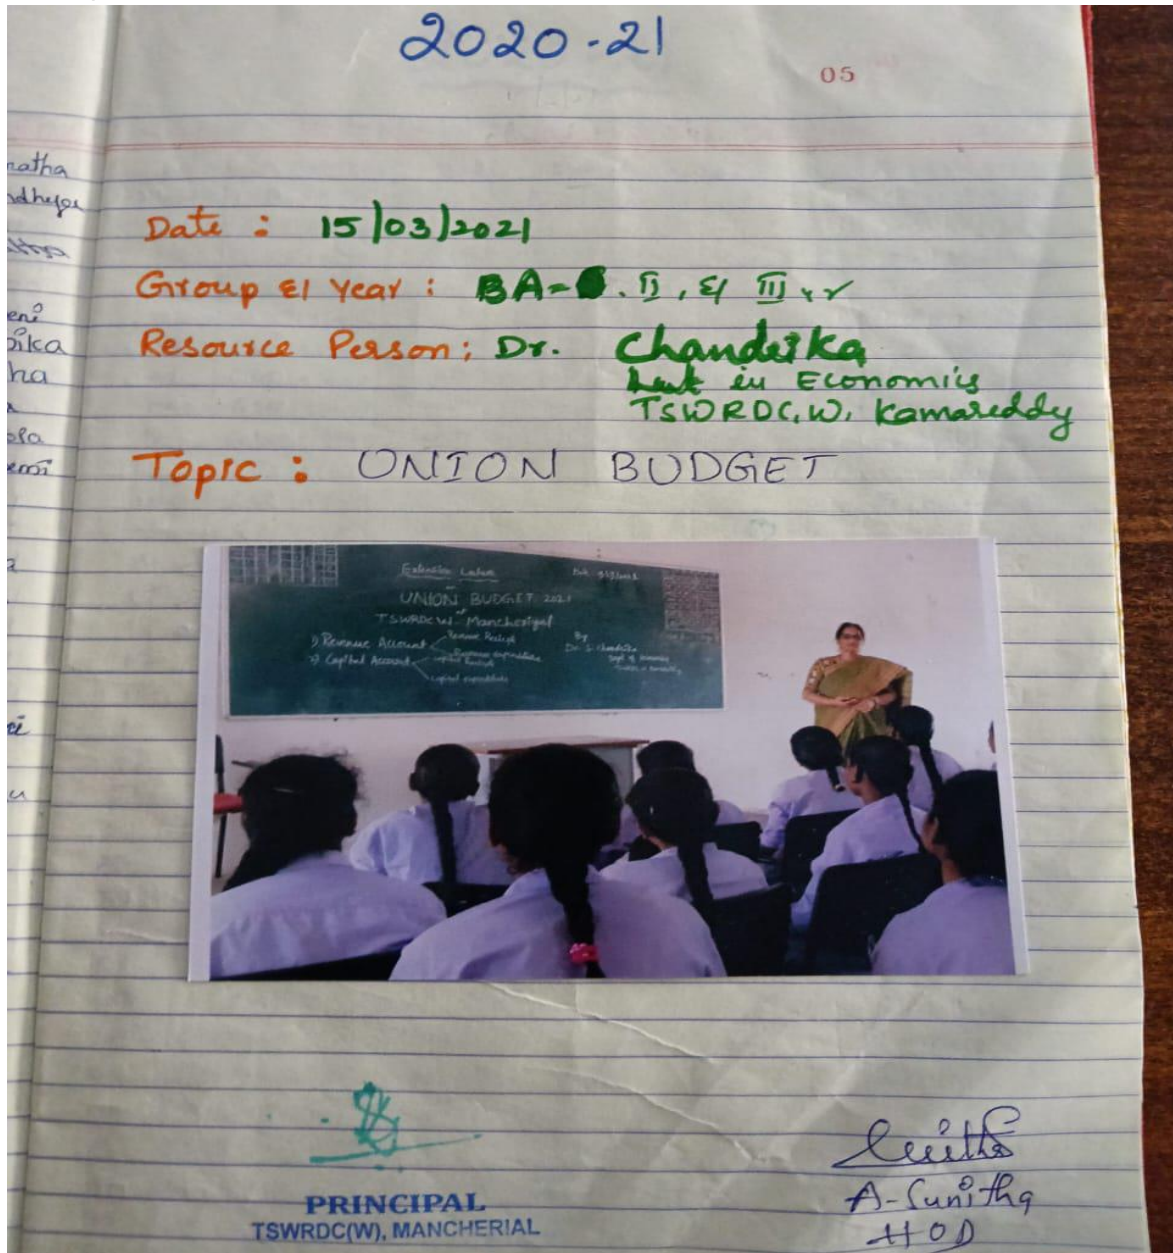 2020-21
05
Date : 15/03/2021
Group & Year : BA- . II, & III
Resource Person: Dr. Chandrika
Lect in Economics
TSWRDC.W. Kamareddy
Topic : UNION BUDGET
Extension Lecture
UNION BUDGET 2021
TSWRDCW Mancheriyal
1) Revenue Account
Revenue Receipt
Revenue expenditure
2) Capital Account
Capital Receipt
Capital expenditure
By
Dr. S. Chandrika
Dept of Economics
PRINCIPAL
TSWRDC(W), MANCHERIAL
A-Sunitha
HOD
natha
eni
pika
ha